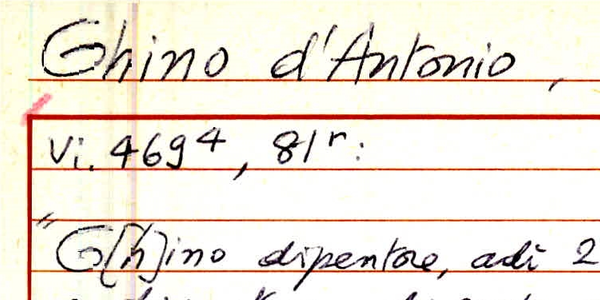 Ghino d'Antonio,
Vi. 4694, 81r:
"G[h]ino dipentore, adì 2